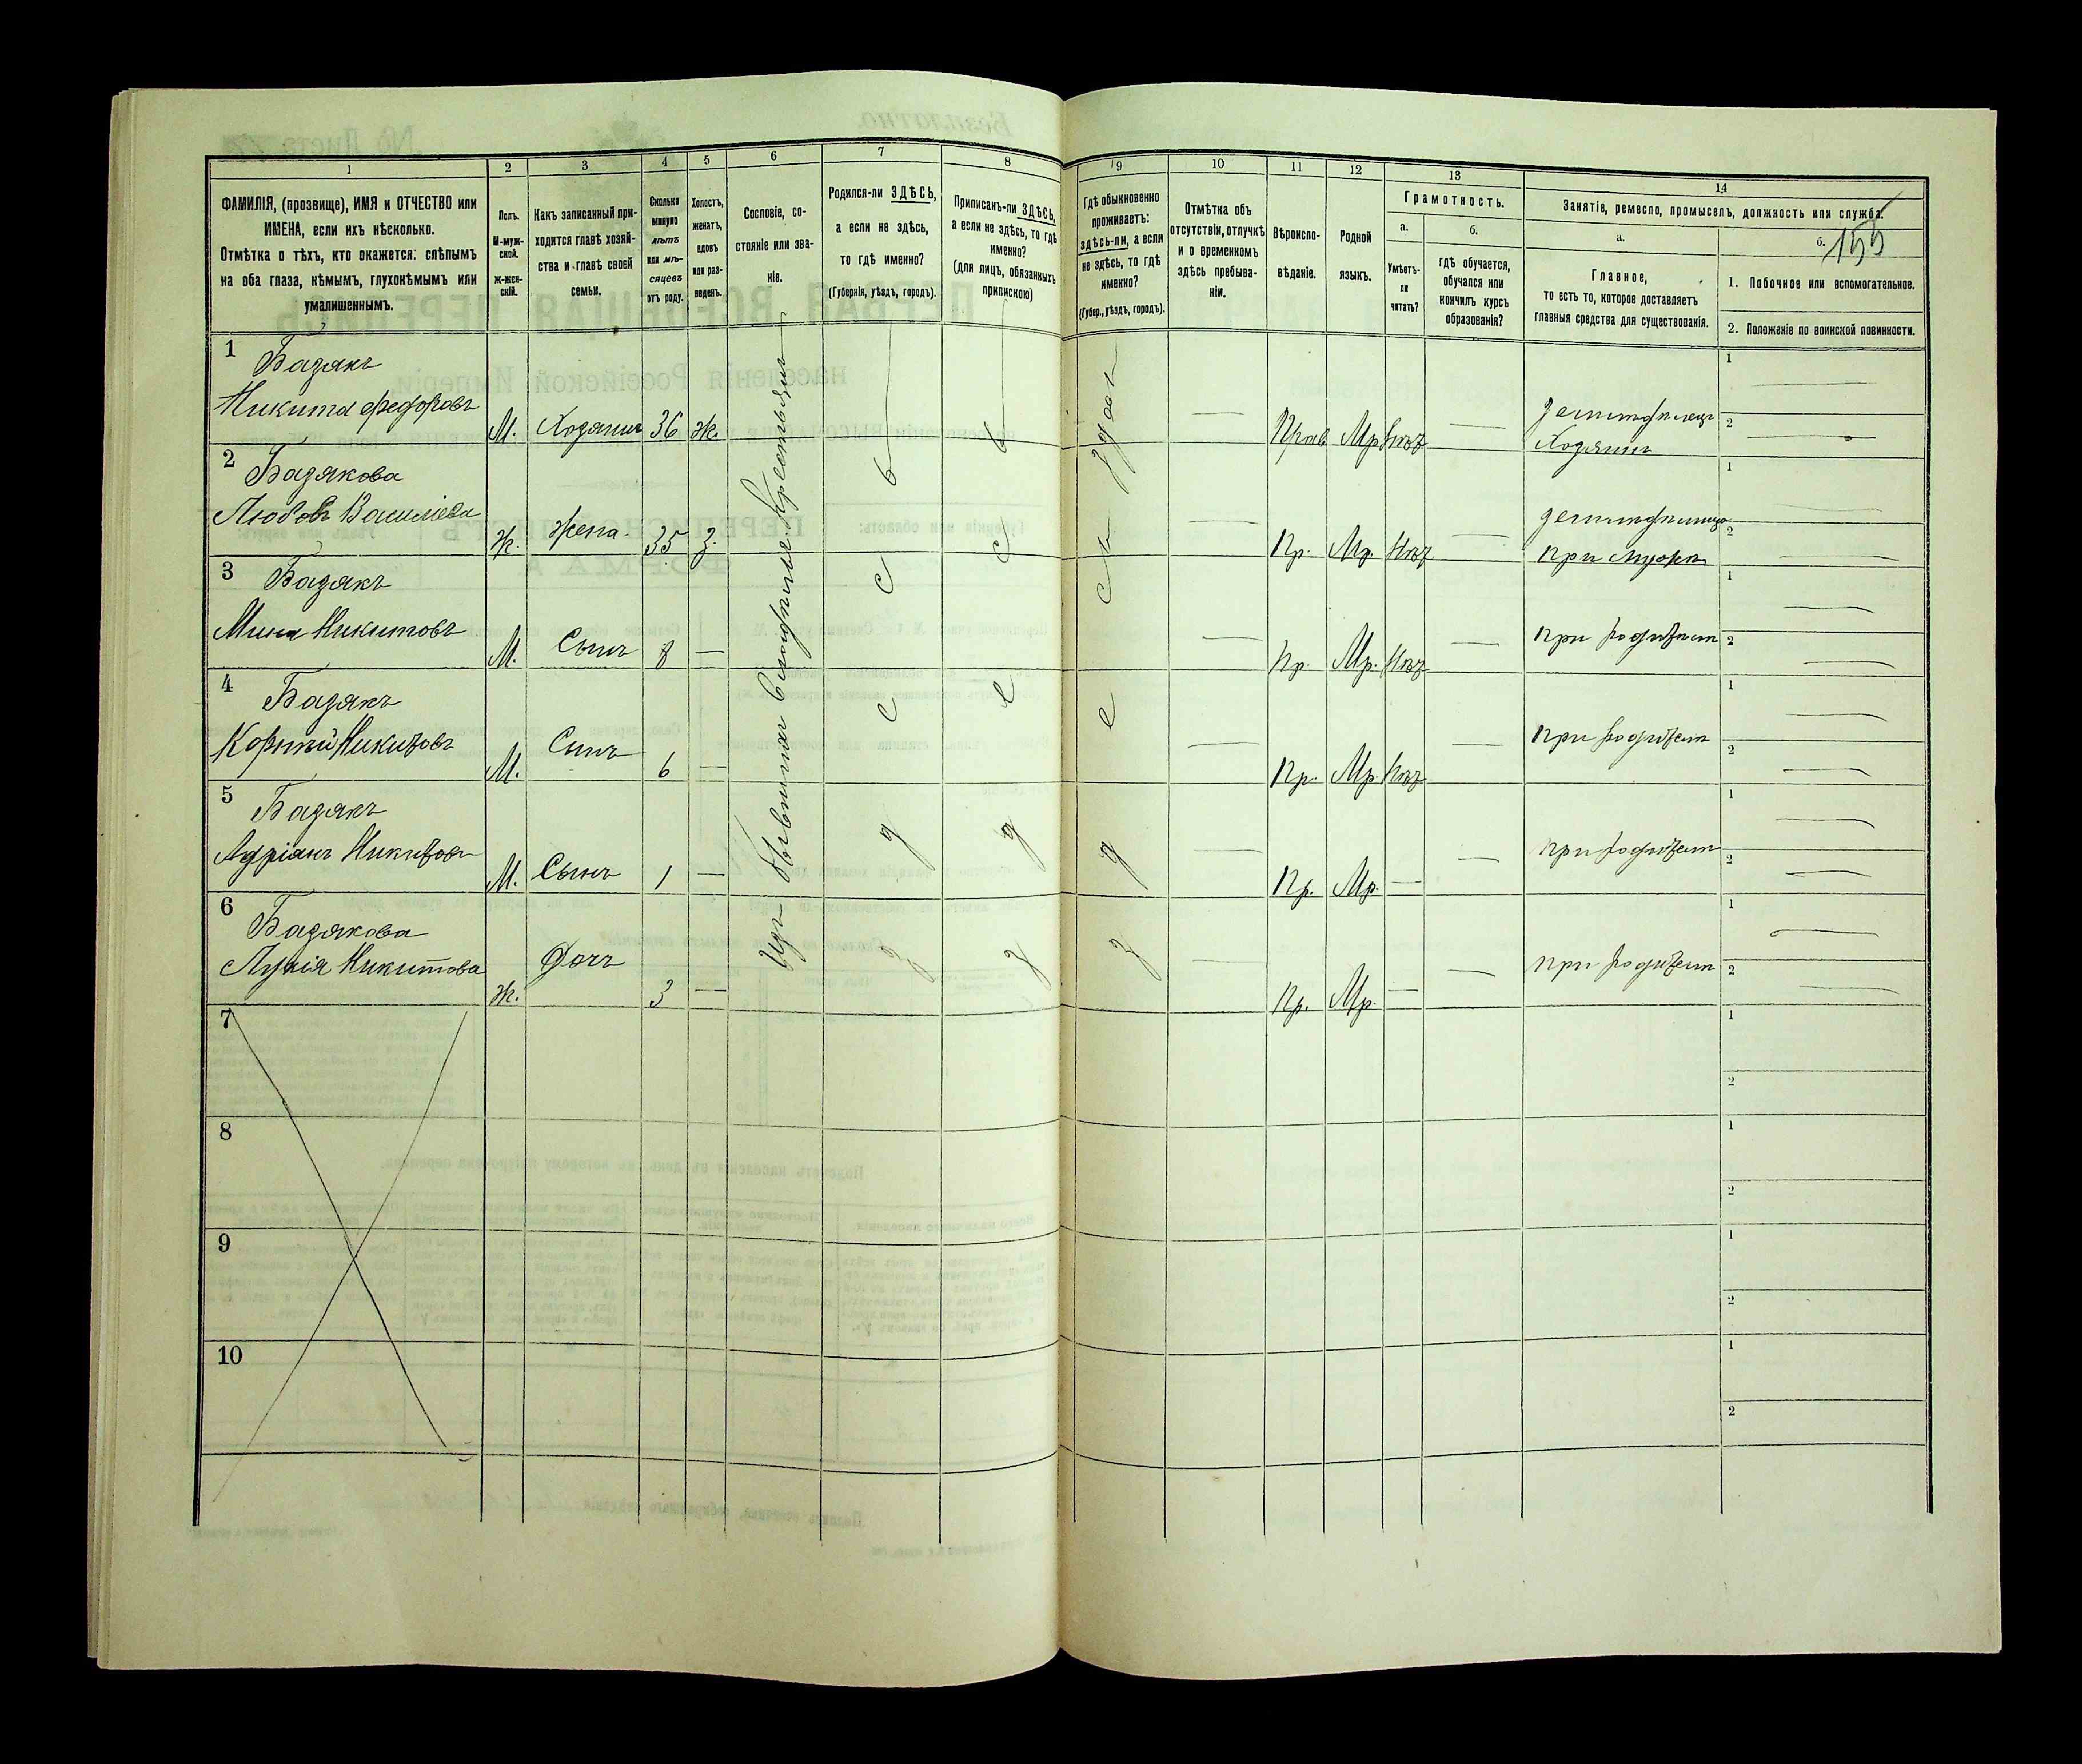 155
1
2
3
4
5
6
7
8
9
10
11
12
13
14
ФАМИЛІЯ, (прозвище), ИМЯ и ОТЧЕСТВО или
ИМЕНА, если ихъ нѣсколько.
Отмѣтка о тѣхъ, кто окажется: слѣпымъ
на оба глаза, нѣмымъ, глухонѣмымъ или
умалишеннымъ.
Полъ.
М-муж-
ской.
ж-жен-
скій.
Какъ записанный при-
ходится главѣ хозяй-
ства и главѣ своей
семьи.
Сколько
минуло
лѣтъ
или мѣ-
сяцевъ
отъ роду.
Холостъ,
женатъ,
вдовъ
или раз-
веденъ.
Сословіе, со-
стояніе или зва-
ніе.
Родился-ли ЗДѢСЬ,
а если не здѣсь,
то гдѣ именно?
(Губернія, уѣздъ, городъ).
Приписанъ-ли ЗДѢСЬ,
а если не здѣсь, то гдѣ
именно?
(для лицъ, обязанныхъ
припискою)
Гдѣ обыкновенно
проживаетъ:
здѣсь-ли, а если
не здѣсь, то гдѣ
именно?
(Губер., уѣздъ, городъ).
Отмѣтка объ
отсутствіи, отлучкѣ
и о временномъ
здѣсь пребыва-
ніи.
Вѣроиспо-
вѣданіе.
Родной
языкъ.
Грамотность.
а.
Умѣетъ-
ли
читать?
б.
гдѣ обучается,
обучался или
кончилъ курсъ
образованія?
Занятіе, ремесло, промыселъ, должность или служба.
а.
Главное,
то есть то, которое доставляетъ
главныя средства для существованія.
б.
1. Побочное или вспомогательное.
2. Положеніе по воинской повинности.
Изъ бывшихъ
Крестьянъ
здѣсь
1
Базякъ
Никита Федоровъ
М. Хозяинъ 36 ж.
Прав Мр. Нѣтъ
земледѣлецъ
Хозяинъ
1
2
2
Базякова
Любовь Василіева
Ж. Жена. 35 З.
Пр. Мр. Нѣтъ
при мужѣ
1
2
3
Базякъ
Мина Никитовъ
М. Сынъ 8 —
Пр. Мр. Нѣтъ
при родител
1
2
4
Базякъ
Корнѣй Никитовъ
М. Сынъ 6 —
Пр. Мр. Нѣтъ
при родител
1
2
5
Базякъ
Адріанъ Никитовъ
М. Сынъ 1 —
Пр. Мр. —
при родител
1
2
6
Базякова
Лукія Никитова
Ж. Дочь 3 —
Пр. Мр. —
при родител
1
2
7
1
2
8
1
2
9
1
2
10
1
2